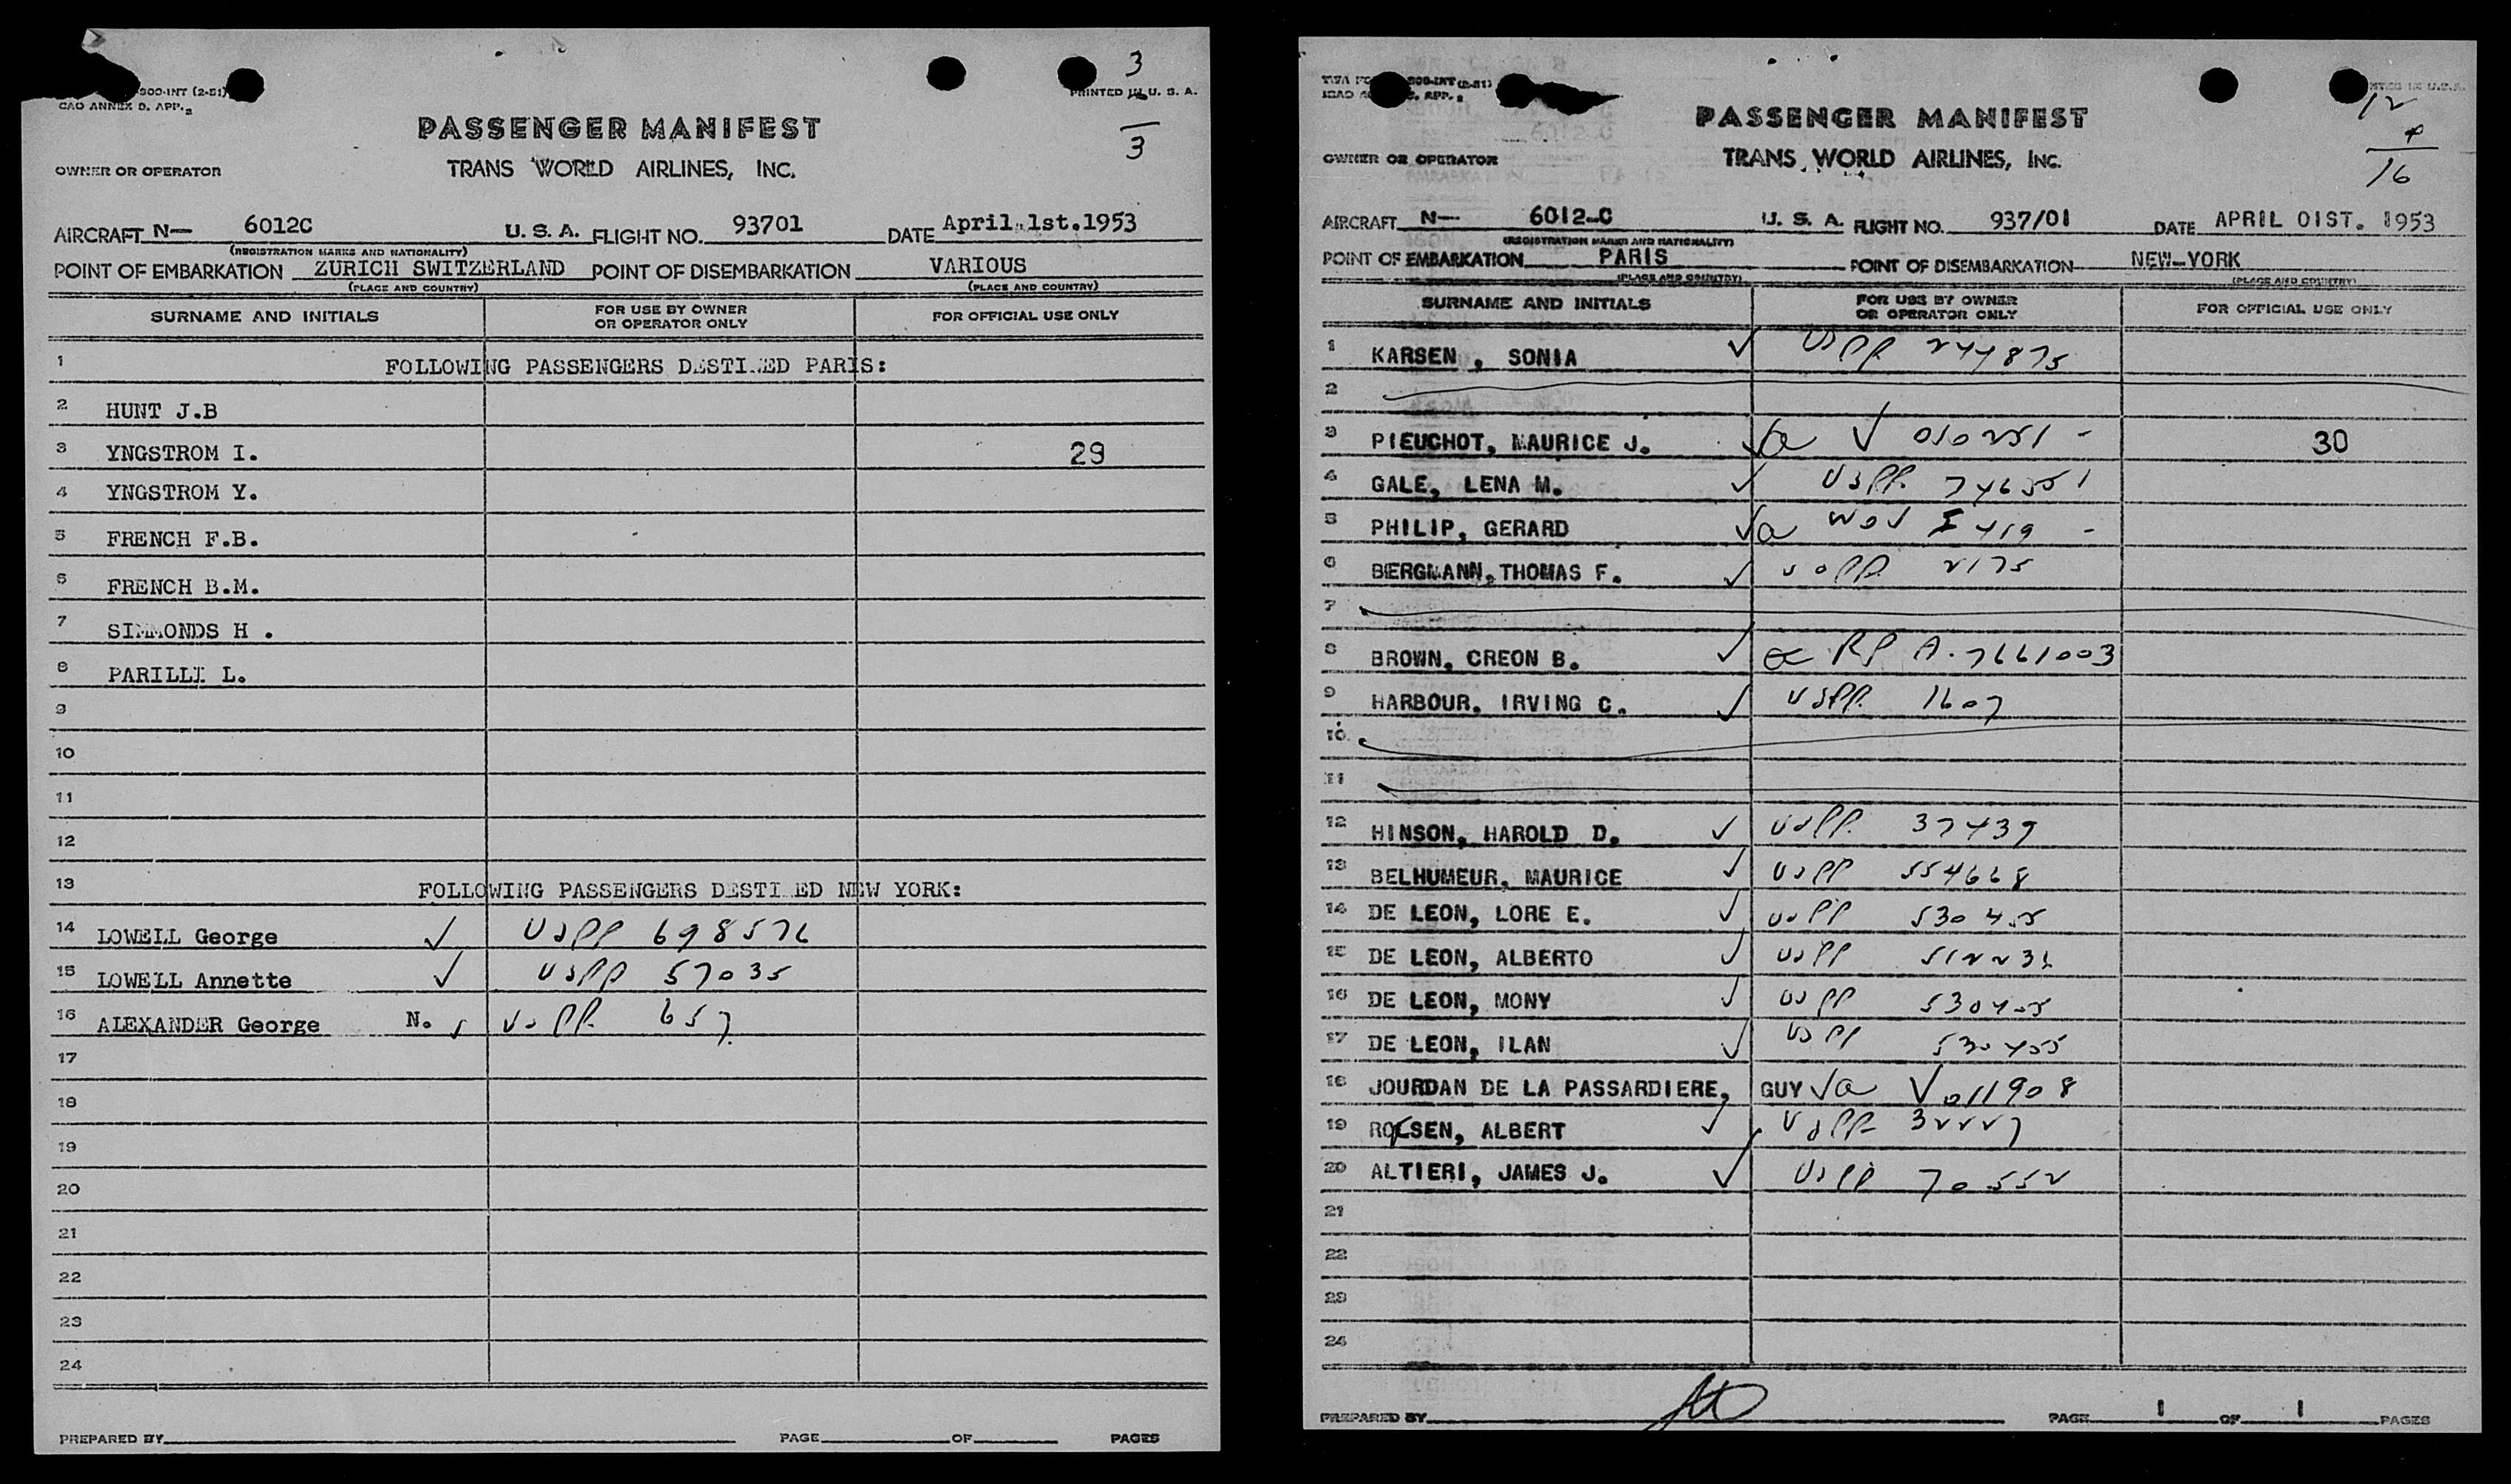 3
300-INT (2-51)
PRINTED IN U. S. A.
CAO ANNEX D. APP. 2
PASSENGER MANIFEST
3
TRANS WORLD AIRLINES, INC.
OWNER OR OPERATOR
AIRCRAFT N— 6012C U. S. A. FLIGHT NO. 93701 DATE April 1st. 1953
(REGISTRATION MARKS AND NATIONALITY)
POINT OF EMBARKATION ZURICH SWITZERLAND POINT OF DISEMBARKATION VARIOUS
(PLACE AND COUNTRY) (PLACE AND COUNTRY)
SURNAME AND INITIALS FOR USE BY OWNER OR OPERATOR ONLY FOR OFFICIAL USE ONLY
1 FOLLOWING PASSENGERS DESTINED PARIS:
2 HUNT J.B
3 YNGSTROM I. 29
4 YNGSTROM Y.
5 FRENCH F.B.
6 FRENCH B.M.
7 SIMMONDS H .
8 PARILLI L.
9
10
11
12
13 FOLLOWING PASSENGERS DESTINED NEW YORK:
14 LOWELL George ✓ USPP 698576
15 LOWELL Annette ✓ USPP 57035
16 ALEXANDER George N. USPP 657
17
18
19
20
21
22
23
24
PREPARED BY PAGE OF PAGES
TWA 300-INT (2-51)
APP. 2
PASSENGER MANIFEST
12
4
16
OWNER OR OPERATOR
TRANS WORLD AIRLINES, INC.
AIRCRAFT N— 6012-C U. S. A. FLIGHT NO. 937/01 DATE APRIL 01ST. 1953
(REGISTRATION MARKS AND NATIONALITY)
POINT OF EMBARKATION PARIS POINT OF DISEMBARKATION NEW-YORK
(PLACE AND COUNTRY) (PLACE AND COUNTRY)
SURNAME AND INITIALS FOR USE BY OWNER OR OPERATOR ONLY FOR OFFICIAL USE ONLY
1 KARSEN , SONIA ✓ USPP 244875
2
3 PIEUCHOT, MAURICE J. ✓ a V 010251 - 30
4 GALE, LENA M. ✓ USPP 746551
5 PHILIP, GERARD ✓ a I 419 -
6 BERGMANN, THOMAS F. ✓ USPP 2175
7
8 BROWN, CREON B. ✓ RP A-7661003
9 HARBOUR, IRVING C. ✓ USPP 1607
10
11
12 HINSON, HAROLD D. ✓ USPP 37439
13 BELHUMEUR, MAURICE ✓ USPP 554668
14 DE LEON, LORE E. ✓ USPP 530455
15 DE LEON, ALBERTO ✓ USPP
16 DE LEON, MONY ✓ USPP 530455
17 DE LEON, ILAN ✓ USPP 530455
18 JOURDAN DE LA PASSARDIERE, GUY ✓ a V 011908
19 ALBERT ✓ USPP 32227
20 ALTIERI, JAMES J. ✓ USPP 70552
21
22
23
24
PREPARED BY PAGE 1 OF 1 PAGES